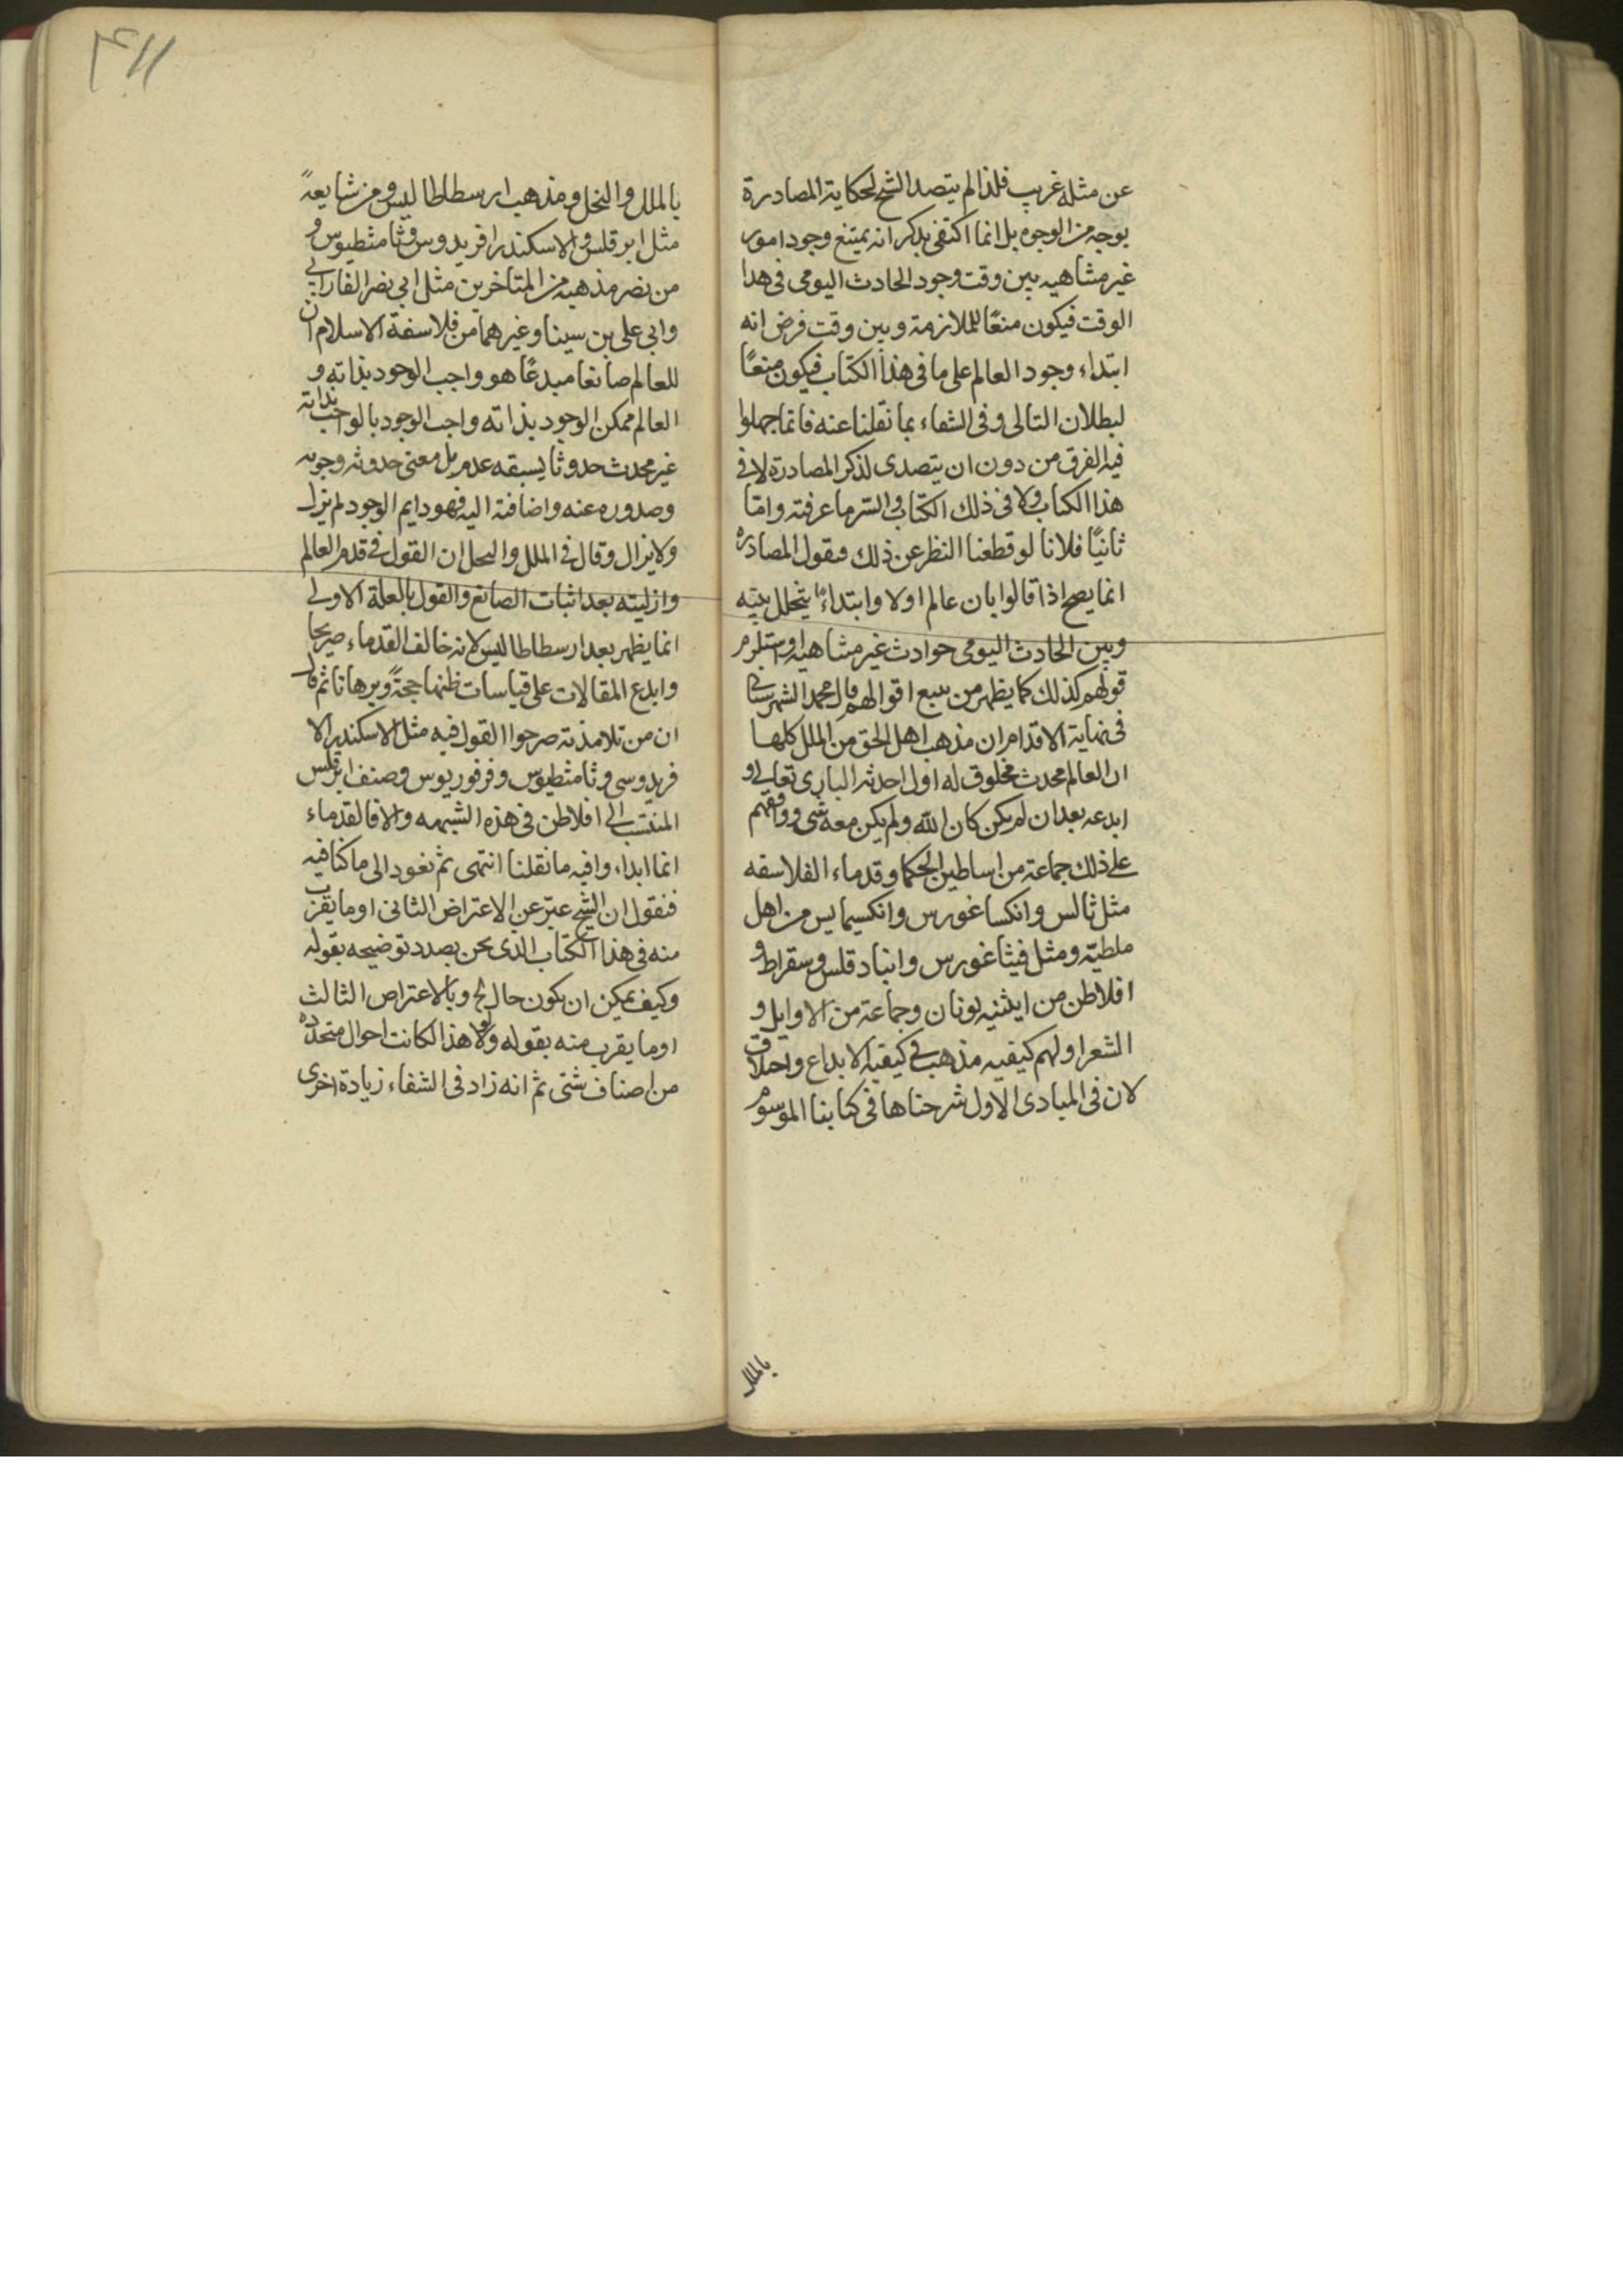 عن مثله غريب فلذا لم يتصد الشيخ لحكاية المصادرة
بوجه من الوجوه بل انما اكتفى بذكر انه يمتنع وجود امور
غير متناهيه بين وقت وجود الحادث اليومى فى هذا
الوقت فيكون منعًا للملازمة وبين وقت فرض انه
ابتداء وجود العالم على ما فى هذا الكتاب فيكون منعًا
لبطلان التالى وفى الشفاء بما نقلنا عنه فانما
فيه الفرق من دون ان يتصدى لذكر المصادرة لا فى
هذا الكتاب ولا فى ذلك الكتاب والسر ما عرفته واما
ثانيًا فلانا لو قطعنا النظر عن ذلك فنقول المصادره
انما يصح اذا قالوا بان عالم اولا وابتداءً ما يتخلل بينه
وبين الحادث اليومى حوادث غير متناهيه او استلزم
قولهم كذلك كما يظهر من تتبع اقوالهم قال محمد الشهرستانى
فى نهاية الاقدام ان مذهب اهل الحق من الملل كلها
ان العالم محدث مخلوق له اول احدثه البارى تعالى و
ابدعه بعد ان لم يكن كان الله ولم يكن معه شى ووافقهم
على ذلك جماعة من اساطين الحكما وقدماء الفلاسفه
مثل ثالس وانكساغورس وانكسيمايس من اهل
ملطيّة ومثل فيثاغورس وانبادقلس وسقراط و
افلاطن من ايثنيه لونان وجماعة من الاوايل و
الشعرا ولهم كيفيه مذهب فى كيفية الابداع واحلاق
لان فى المبادى الاول شرحناها فى كتابنا الموسوم
بالملل
٤١١
بالملل والنحل ومذهب ارسطاطاليس ومن شايعهً
مثل ابرقلس والاسكندر افريدوس وثامثطيوس و
من نصر مذهبه من المتاخرين مثل ابى نصر الفارابى
وابى على بن سينا وغيرهما من فلاسفة الاسلام ان
للعالم صانعا مبدعًا هو واجب الوجود بذاته و
العالم ممكن الوجود بذاته واجب الوجود بالواجب بذاته
غير محدث حدوثا يسبقه عدم بل معنى حدوثه وجوبه
وصدوره عنه واضافته اليه فهو دايم الوجود لم يزل
ولا يزال وقال فى الملل والنحل ان القول فى قدم العالم
وازليته بعد اثبات الصانع والقول بالعلة الاولى
انما يظهر بعد ارسطاطاليس لانه خالف القدماء صريحا
وابدع المقالات على قياسات ظنها حجةً وبرهانا ثم قال
ان من تلامذته صرحوا القول فيه مثل الاسكندر الا
فريدوسى وثامثطيوس وفرفوريوس وصنف ابرقلس
المنتسب الى افلاطن فى هذه الشبهه والا فالقدماء
انما ابداء وافيه ما نقلنا انتهى ثم نعود الى ما كنا فيه
فنقول ان الشيخ عبّر عن الاعتراض الثانى او ما يقرب
منه فى هذا الكتاب الذى نحن بصدد توضيحه بقوله
وكيف يمكن ان يكون حال الخ وبالاعتراض الثالث
او ما يقرب منه بقوله ولولا هذا لكانت احوال متجدده
من اصناف شتى ثم انه زاد فى الشفاء زيادة اخرى